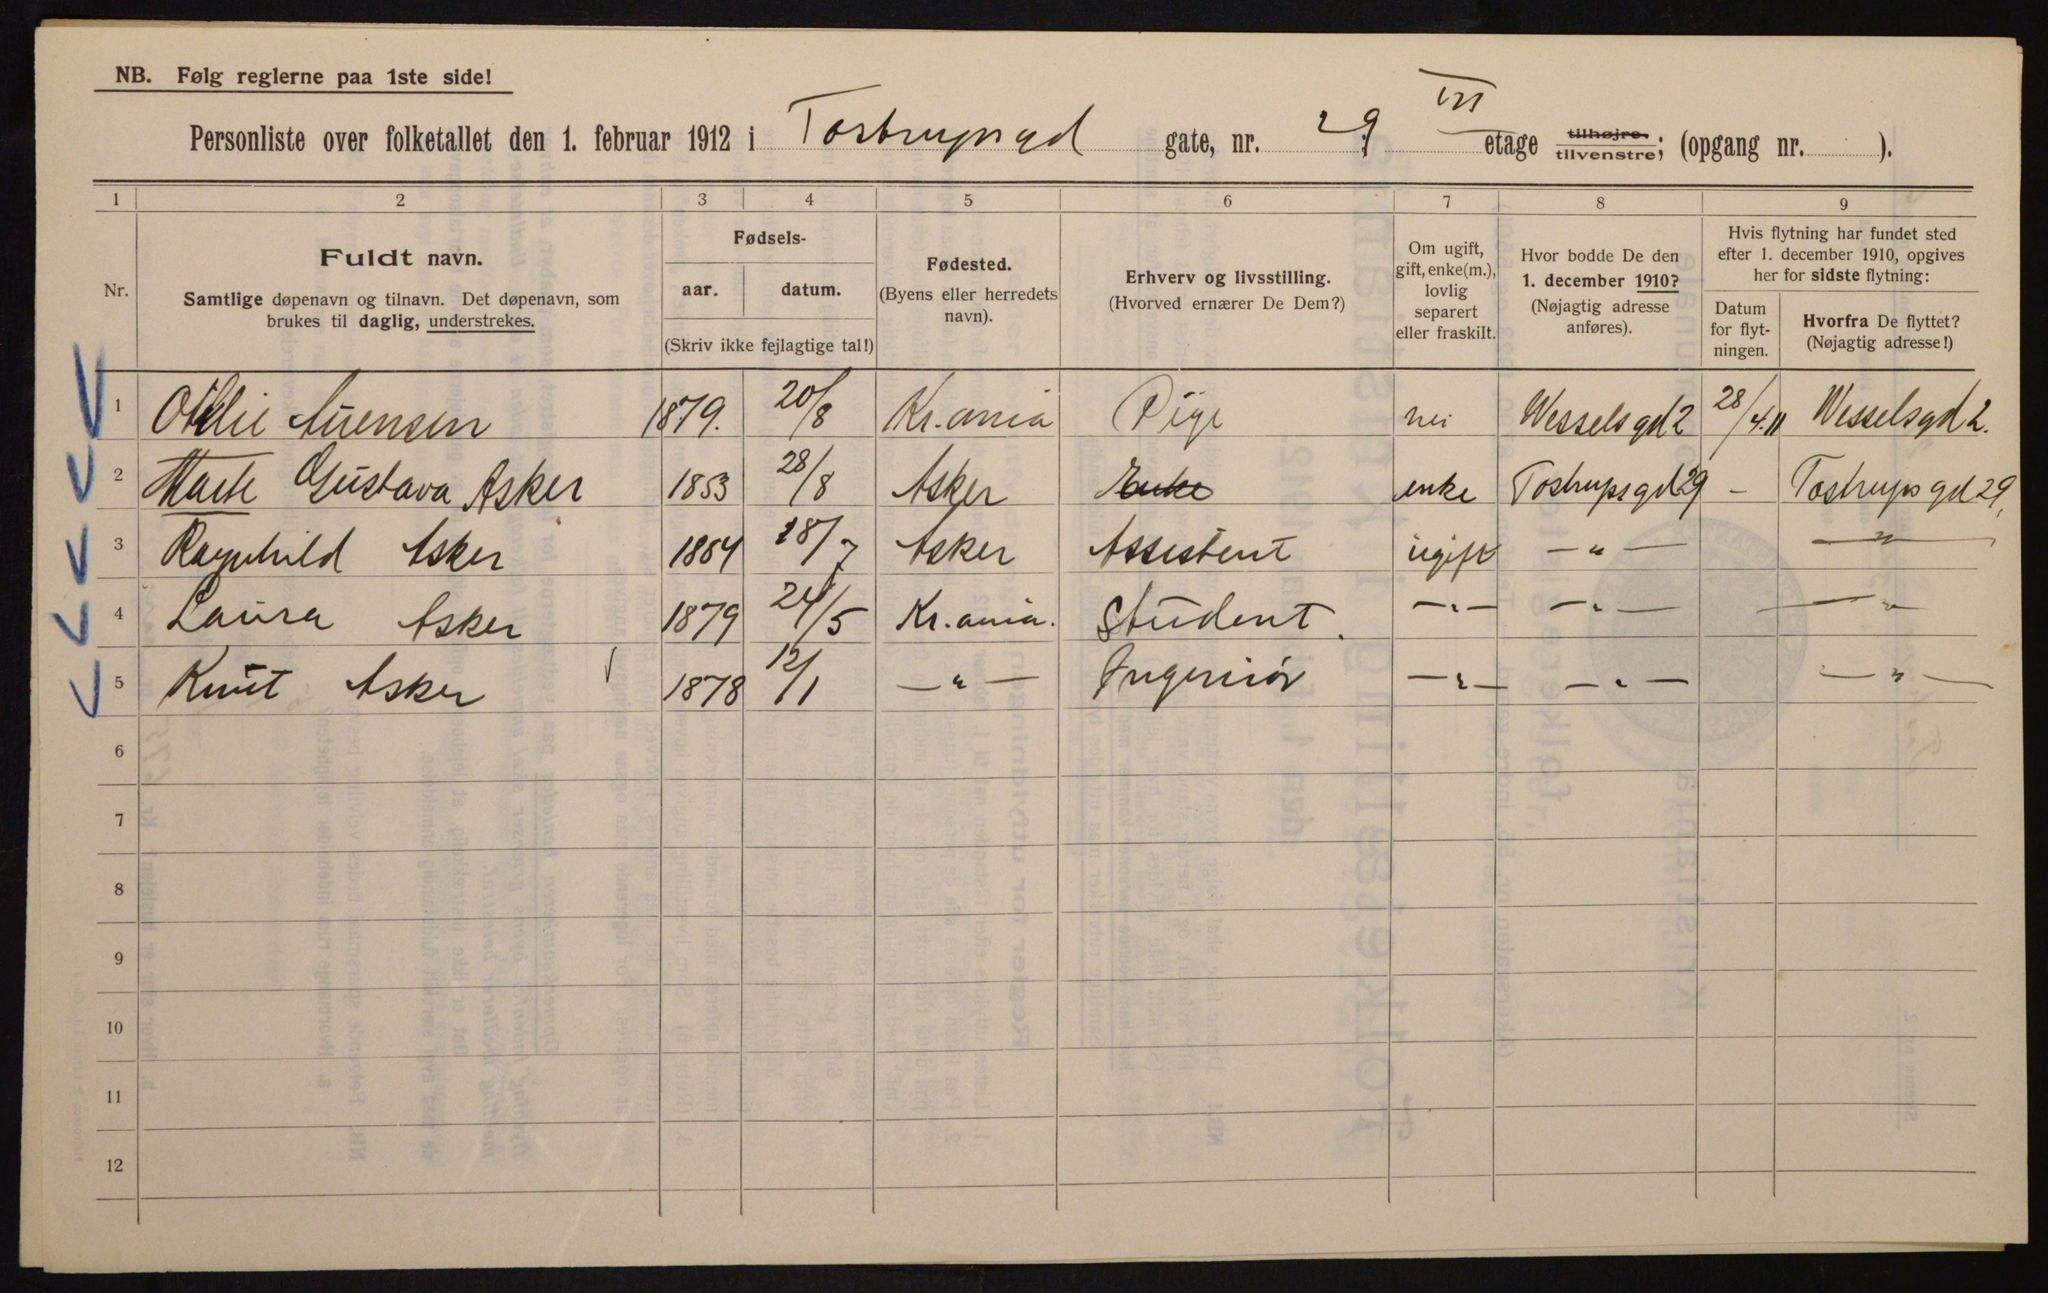 NB. Følg reglerne paa 1ste side!
Personliste over folketallet den 1. februar 1912 i Tostrupsgd gate, nr. 29; III etage tilhøjre/tilvenstre; (opgang nr. ).
1 2 3 4 5 6 7 8 9
Nr.
Fuldt navn.
Samtlige døpenavn og tilnavn. Det døpenavn, som
brukes til daglig, understrekes.
Fødsels-
aar. datum.
(Skriv ikke fejlagtige tal!)
Fødested.
(Byens eller herredets
navn).
Erhverv og livsstilling.
(Hvorved ernærer De Dem?)
Om ugift,
gift, enke(m.),
lovlig
separert
eller fraskilt.
Hvor bodde De den
1. december 1910?
(Nøjagtig adresse
anføres).
Hvis flytning har fundet sted
efter 1. december 1910, opgives
her for sidste flytning:
Datum
for flyt-
ningen.
Hvorfra De flyttet?
(Nøjagtig adresse!)
1 1879. 20/8 Kr.ania Pige nei Wesselsgd 2 28/4.11 Wesselsgd 2.
2 Marte Gustava Asker 1853 28/8 Asker Enke enke Tostrupsgd 29 – Tostrupsgd 29,
3 Ragnhild Asker 18/7 Asker Assistent ugift — " — — " —
4 Laura Asker 1879 24/5 Kr.ania. Student. — " — — " — — " —
5 Knut Asker 1878 12/1 — " — Ingeniør — " — — " — — " —
6
7
8
9
10
11
12